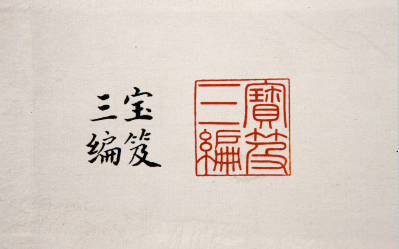 宝笈
三编
寶笈
三編